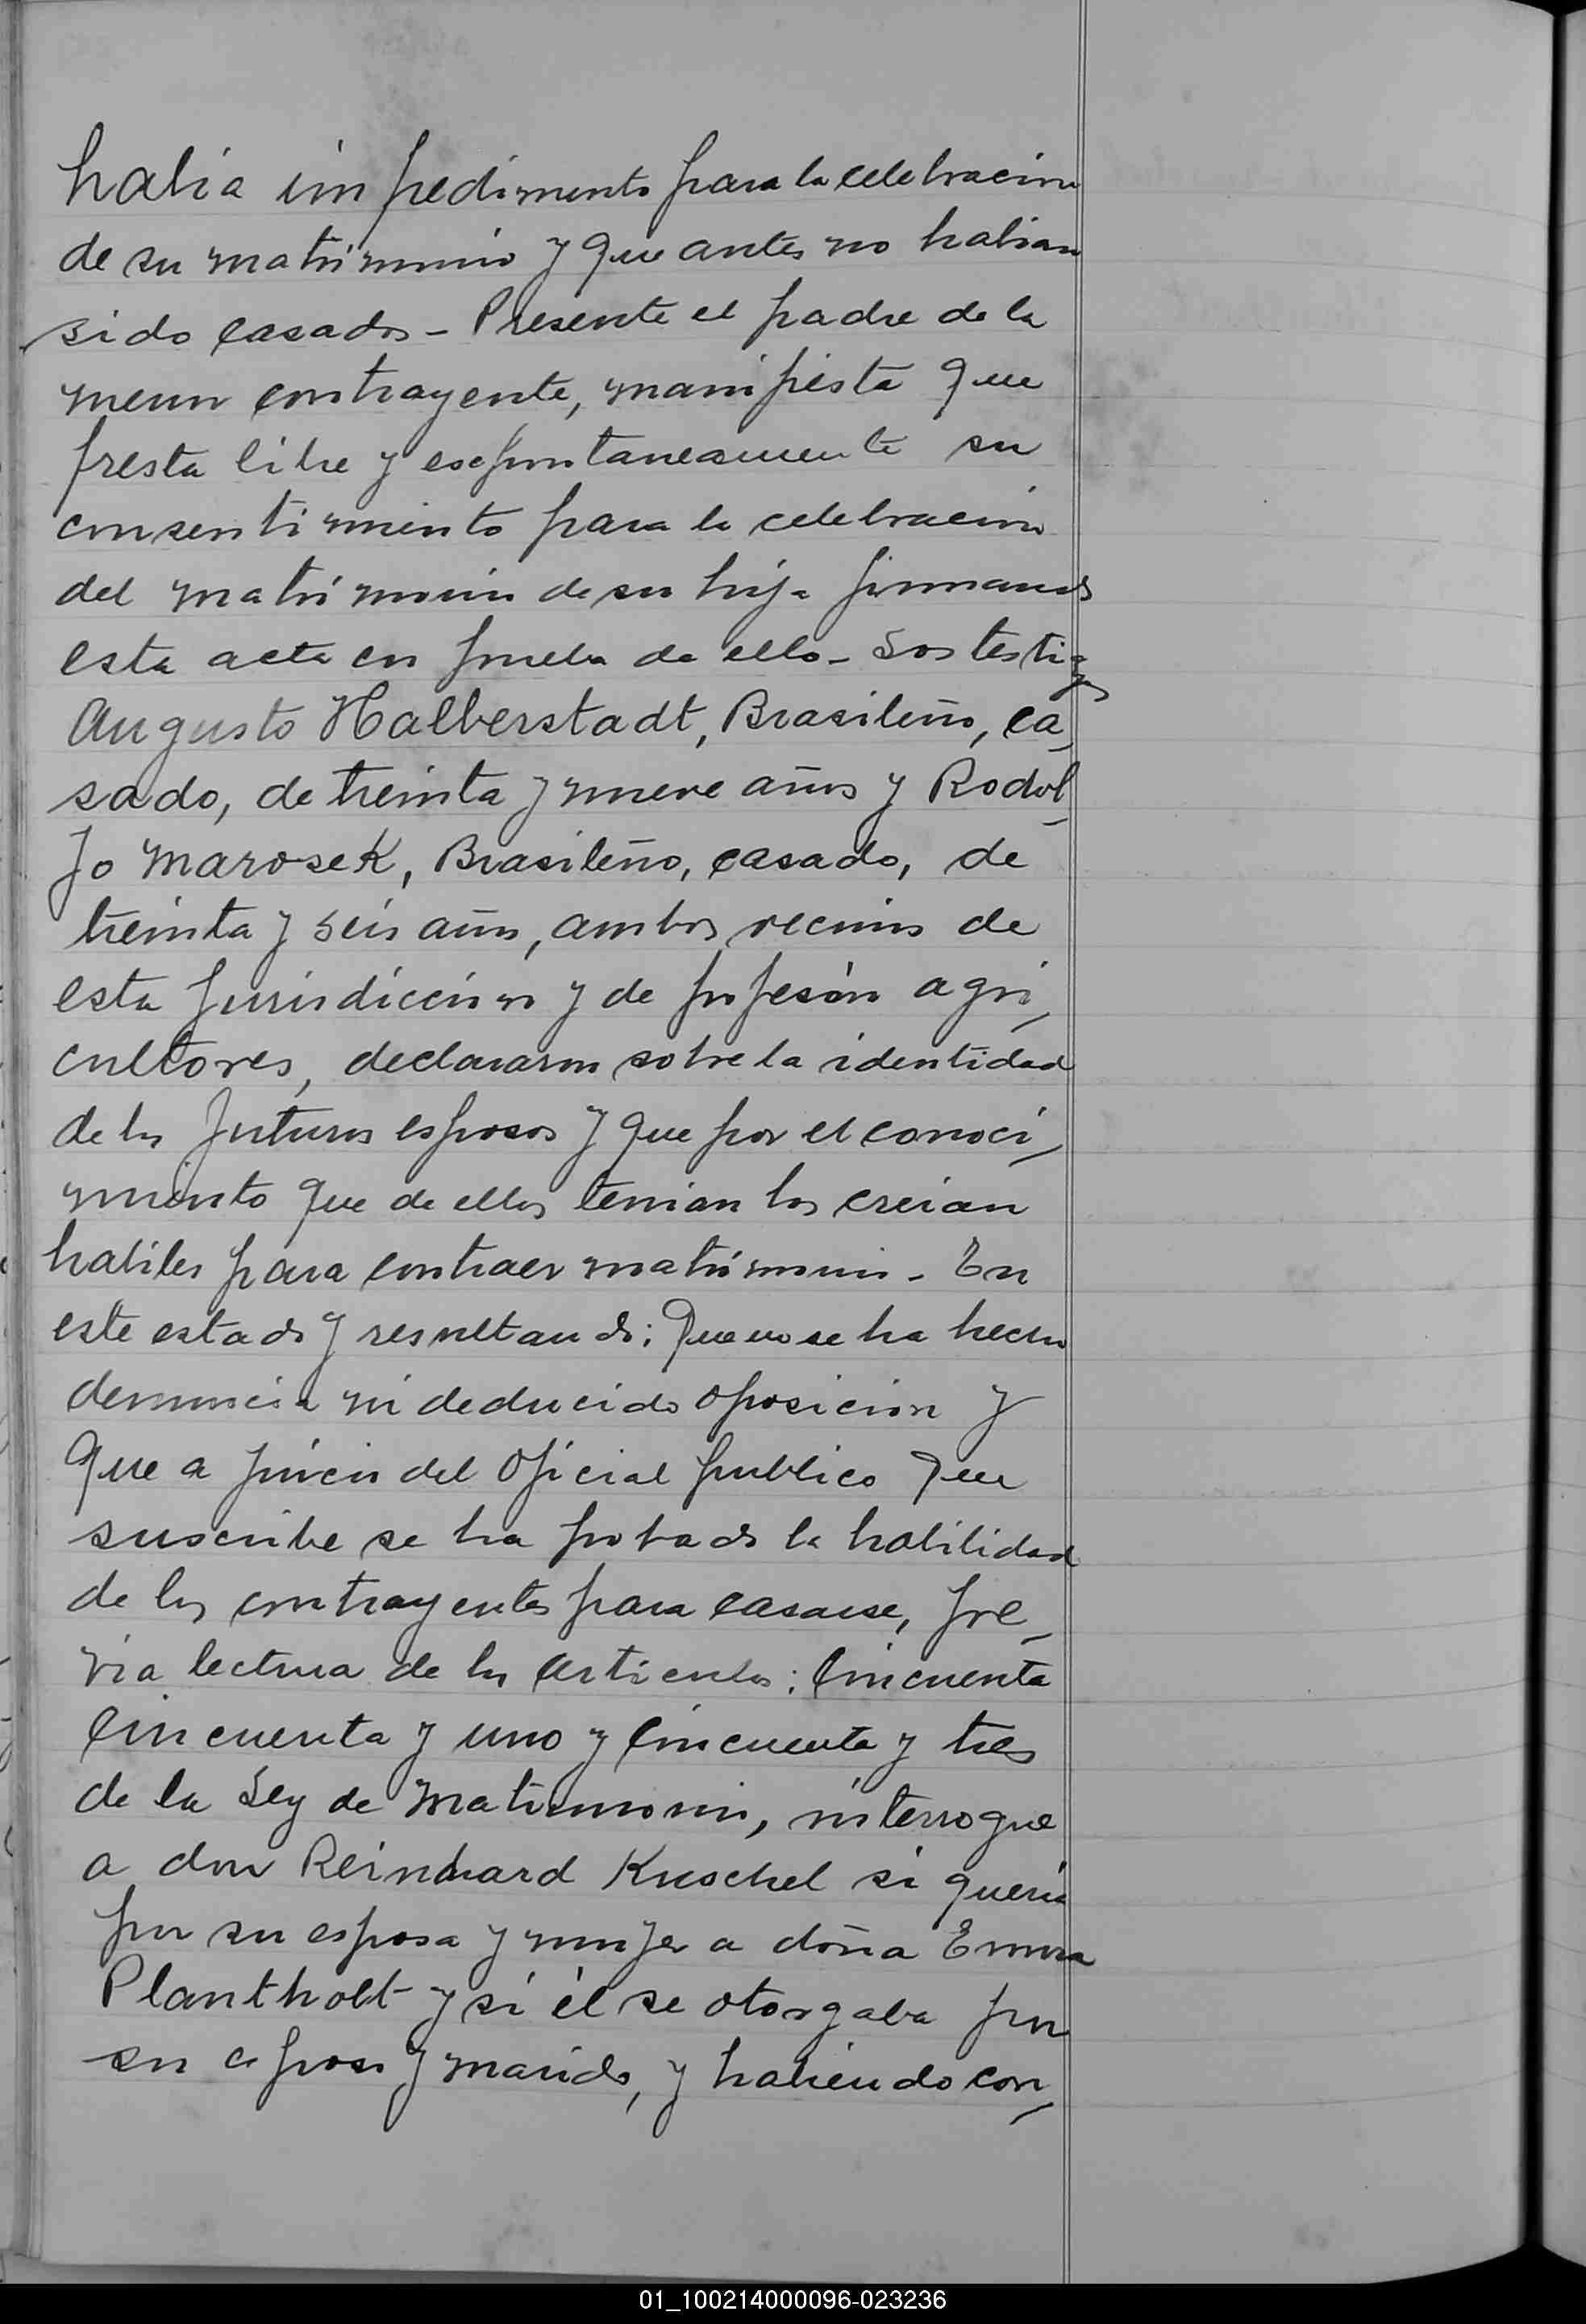 habia impedimento para la celebracion
de su matrimonio y que antes no habian
sido casados - Presente el padre de la
menor contrayente, manifiesta que
presta libre y espontaneamente su
consentimiento para la celebracion
del matrimonio de su hija firmando
esta acta en prueba de ello - Los testigos
Augusto Halberstadt, Brasileño, ca-
sado, de treinta y nueve años y Rodol-
fo Marosek, Brasileño, casado, de
treinta y seis años, ambos vecinos de
esta jurisdiccion y de profesión agri-
cultores, declararon sobre la identidad
de los futuros esposos y que por el conoci-
miento que de ellos tenian los creian
habiles para contraer matrimonio - En
este estado y resultando: Que no se ha hecho
denuncia ni deducido oposicion y
que a juicio del oficial publico que
suscribe se ha probado la habilidad
de los contrayentes para casarse, pre-
via lectura de los articulos: Cincuenta
Cincuenta y uno y Cincuenta y tres
de la Ley de Matrimonio, interrogue
a don Reinhard Kuschel si queria
por su esposa y mujer a doña Emma
Plantholt y si él se otorgaba por
su esposo y marido, y habiendo con-
01_100214000096-023236